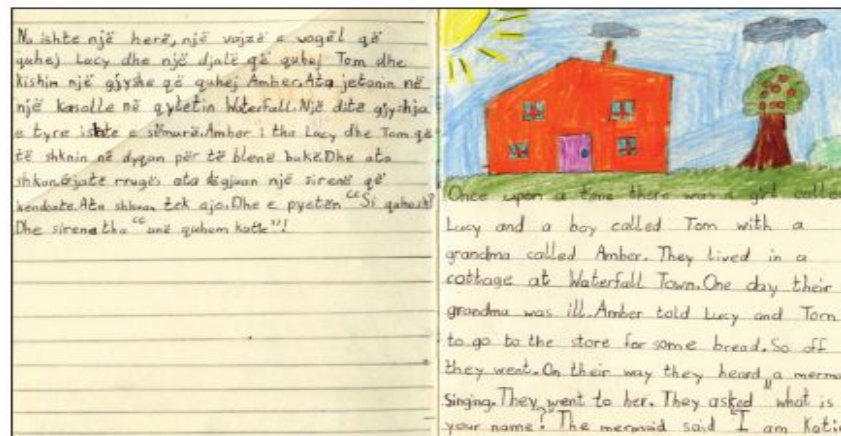 Na ishte një herë, një vajzë e vogël që
quhej Lucy dhe një djalë që quhej Tom dhe
kishin një gjyshe që quhej Amber. Ata jetonin në
një kasolle në qytetin Waterfall. Një ditë gjyshja
e tyre ishte e sëmurë. Amber i tha Lucy dhe Tom që
të shknin në dyqan për të blenë bukë Dhe ata
shkuan rrugës ata dëgjuan një sirenë që
kendonte. Ata shkuan tek ajo. Dhe e pyetën "Si quhesh?
Dhe sirena tha "unë quhem katie"!
Once upon a time there was a girl called
Lucy and a boy called Tom with a
grandma called Amber. They lived in a
cottage at Waterfall Town. One day their
grandma was ill. Amber told Lucy and Tom
to go to the store for some bread. So off
they went. On their way they heard a
Singing. They went to her. They asked "what is
your name?" The mermaid said "I am Katie